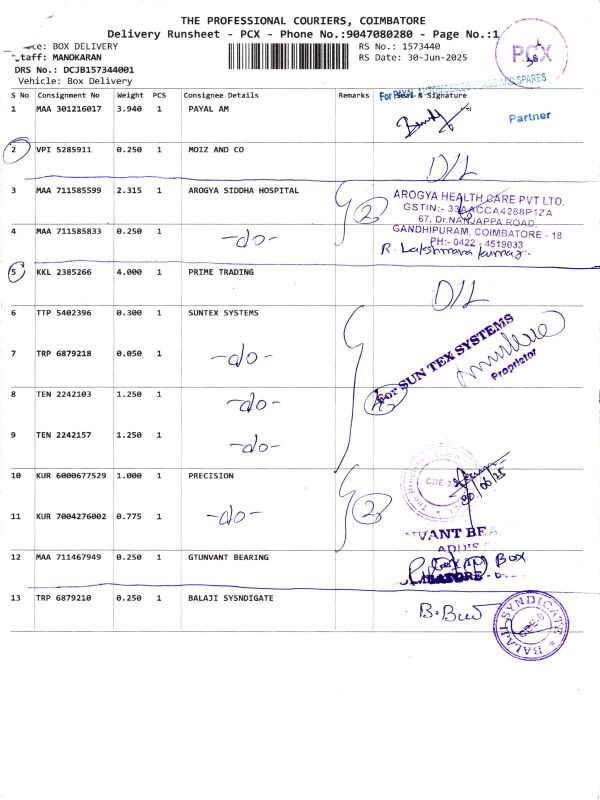 THE PROFESSIONAL COURIERS, COIMBATORE
Delivery Runsheet - PCX - Phone No.:9047080280 - Page No.:1
BOX DELIVERY
RS No.: 1573440
Staff: MANOKARAN
RS Date: 30-Jun-2025
DRS No.: DCJB157344001
Vehicle: Box Delivery
PCX
S No Consignment No Weight PCS Consignee Details Remarks Seal & Signature
1 MAA 301216017 3.940 1 PAYAL AM
For PAYAL SPARES
Partner
2 VPI 5285911 0.250 1 MOIZ AND CO D/L
3 MAA 711585599 2.315 1 AROGYA SIDDHA HOSPITAL 2
AROGYA HEALTH CARE PVT LTD.
GSTIN:- 33AACCA4288P1ZA
67, Dr.NANJAPPA ROAD,
GANDHIPURAM, COIMBATORE - 18
PH:- 0422 - 4519033
4 MAA 711585833 0.250 1 -do-
5 KKL 2385266 4.000 1 PRIME TRADING D/L
6 TTP 5402396 0.300 1 SUNTEX SYSTEMS
For SUN TEX SYSTEMS
Proprietor
7 TRP 6879218 0.050 1 -do-
8 TEN 2242103 1.250 1 -do-
9 TEN 2242157 1.250 1 -do-
10 KUR 6000677529 1.000 1 PRECISION 2
30/06/25
11 KUR 7004276002 0.775 1 -do-
12 MAA 711467949 0.250 1 GTUNVANT BEARING
Box
13 TRP 6879210 0.250 1 BALAJI SYSNDIGATE
BALAJI SYNDICATE